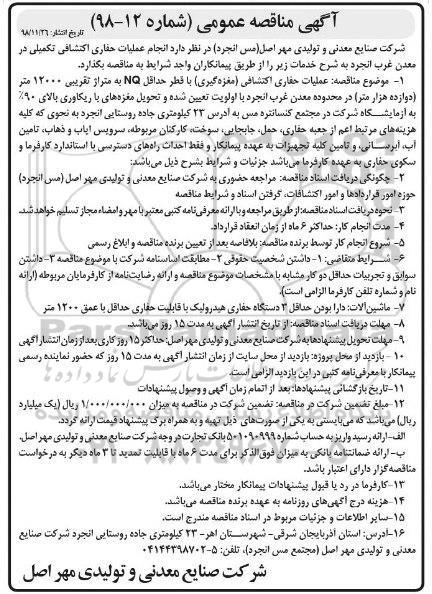 آگهی مناقصه عمومی (شماره ۱۲-۹۸)
تاریخ انتشار: ۹۸/۱۱/۲۶
شرکت صنایع معدنی و تولیدی مهر اصل(مس انجرد) در نظر دارد انجام عملیات حفاری اکتشافی تکمیلی در
معدن غرب انجرد به شرح خدمات زیر را از طریق پیمانکاران واجد شرایط به مناقصه بگذارد.
۱- موضوع مناقصه: عملیات حفاری اکتشافی (مغزه‌گیری) با قطر حداقل NQ به متراژ تقریبی ۱۲۰۰۰ متر
(دوازده هزار متر) در محدوده معدن غرب انجرد با اولویت تعیین شده و تحویل مغزه‌های با ریکاوری بالای ۹۰٪
به آزمایشگاه شرکت در مجتمع کنسانتره مس به آدرس ۲۳ کیلومتری جاده روستایی انجرد به نحوی که کلیه
هزینه‌های مرتبط اعم از جعبه حفاری، حمل، جابجایی، سوخت، کارکنان مربوطه، سرویس ایاب و ذهاب، تامین
آب، آبرسانی، و تامین کلیه تجهیزات به عهده پیمانکار و فقط احداث راه‌های دسترسی با استاندارد کارفرما و
سکوی حفاری به عهده کارفرما می‌باشد جزئیات و شرایط بشرح ذیل می‌باشد:
۲- چگونگی دریافت اسناد مناقصه: مراجعه حضوری به شرکت صنایع معدنی و تولیدی مهر اصل (مس انجرد)
حوزه امور قراردادها و امور اکتشافات، گرفتن اسناد و شرایط مناقصه
۳- نحوه دریافت اسناد مناقصه: از طریق مراجعه و با ارائه معرفی‌نامه کتبی معتبر با مهر و امضاء مجاز تسلیم خواهد شد.
۴- مدت انجام کار: حداکثر ۶ ماه از زمان انعقاد قرارداد.
۵- شروع انجام کار توسط برنده مناقصه: بلافاصله بعد از تعیین برنده مناقصه و ابلاغ رسمی
۶- شرایط متقاضی: ۱- داشتن شخصیت حقوقی ۲- مطابقت اساسنامه شرکت با موضوع مناقصه ۳- داشتن
سوابق و تجربیات حداقل دو کار مشابه با مشخصات موضوع مناقصه و ارائه رضایت‌نامه از کارفرمایان مربوطه (ارائه
نام و شماره تلفن کارفرما الزامی است).
۷- ماشین‌آلات: دارا بودن حداقل ۳ دستگاه حفاری هیدرولیک با قابلیت حفاری حداقل با عمق ۱۲۰۰ متر
۸- مهلت دریافت اسناد مناقصه: از تاریخ انتشار آگهی به مدت ۱۵ روز می‌باشد.
۹- مهلت تحویل پیشنهادها به شرکت صنایع معدنی و تولیدی مهر اصل: حداکثر ۱۵ روز کاری بعد از زمان انتشار آگهی
۱۰- بازدید از محل پروژه: بازدید از محل سایت از زمان انتشار آگهی به مدت ۱۵ روز که حضور نماینده رسمی
پیمانکار با معرفی‌نامه کتبی در این بازدید الزامی است.
۱۱- تاریخ بازگشائی پیشنهادها: بعد از اتمام زمان آگهی و وصول پیشنهادات
۱۲- مبلغ تضمین شرکت در مناقصه: تضمین شرکت در مناقصه به میزان ۱/۰۰۰/۰۰۰/۰۰۰ ریال (یک میلیارد
ریال) می‌باشد که می‌بایستی به یکی از صورت‌های ذیل تهیه و به همراه برگ پیشنهاد قیمت ارائه گردد.
الف- ارائه رسید واریز به حساب شماره ۵۰۱۰۹۰۹۹۹ بانک تجارت در وجه شرکت صنایع معدنی و تولیدی مهر اصل.
ب- ارائه ضمانتنامه بانکی به میزان فوق‌الذکر برای مدت ۶ ماه با قابلیت تمدید تا ۳ ماه دیگر به درخواست
مناقصه‌گزار دارای اعتبار باشد.
۱۳- کارفرما در رد یا قبول پیشنهادات پیمانکار مختار می‌باشد.
۱۴- هزینه درج آگهی‌های روزنامه به عهده برنده مناقصه می‌باشد.
۱۵- سایر اطلاعات و جزئیات مربوط در اسناد مناقصه مندرج است.
۱۶- آدرس: استان آذربایجان شرقی- شهرستان اهر- ۲۳ کیلومتری جاده روستایی انجرد شرکت صنایع
معدنی و تولیدی مهر اصل (مجتمع مس انجرد)، تلفن: ۵-۰۴۱۴۴۳۹۸۷۰۲
شرکت صنایع معدنی و تولیدی مهر اصل